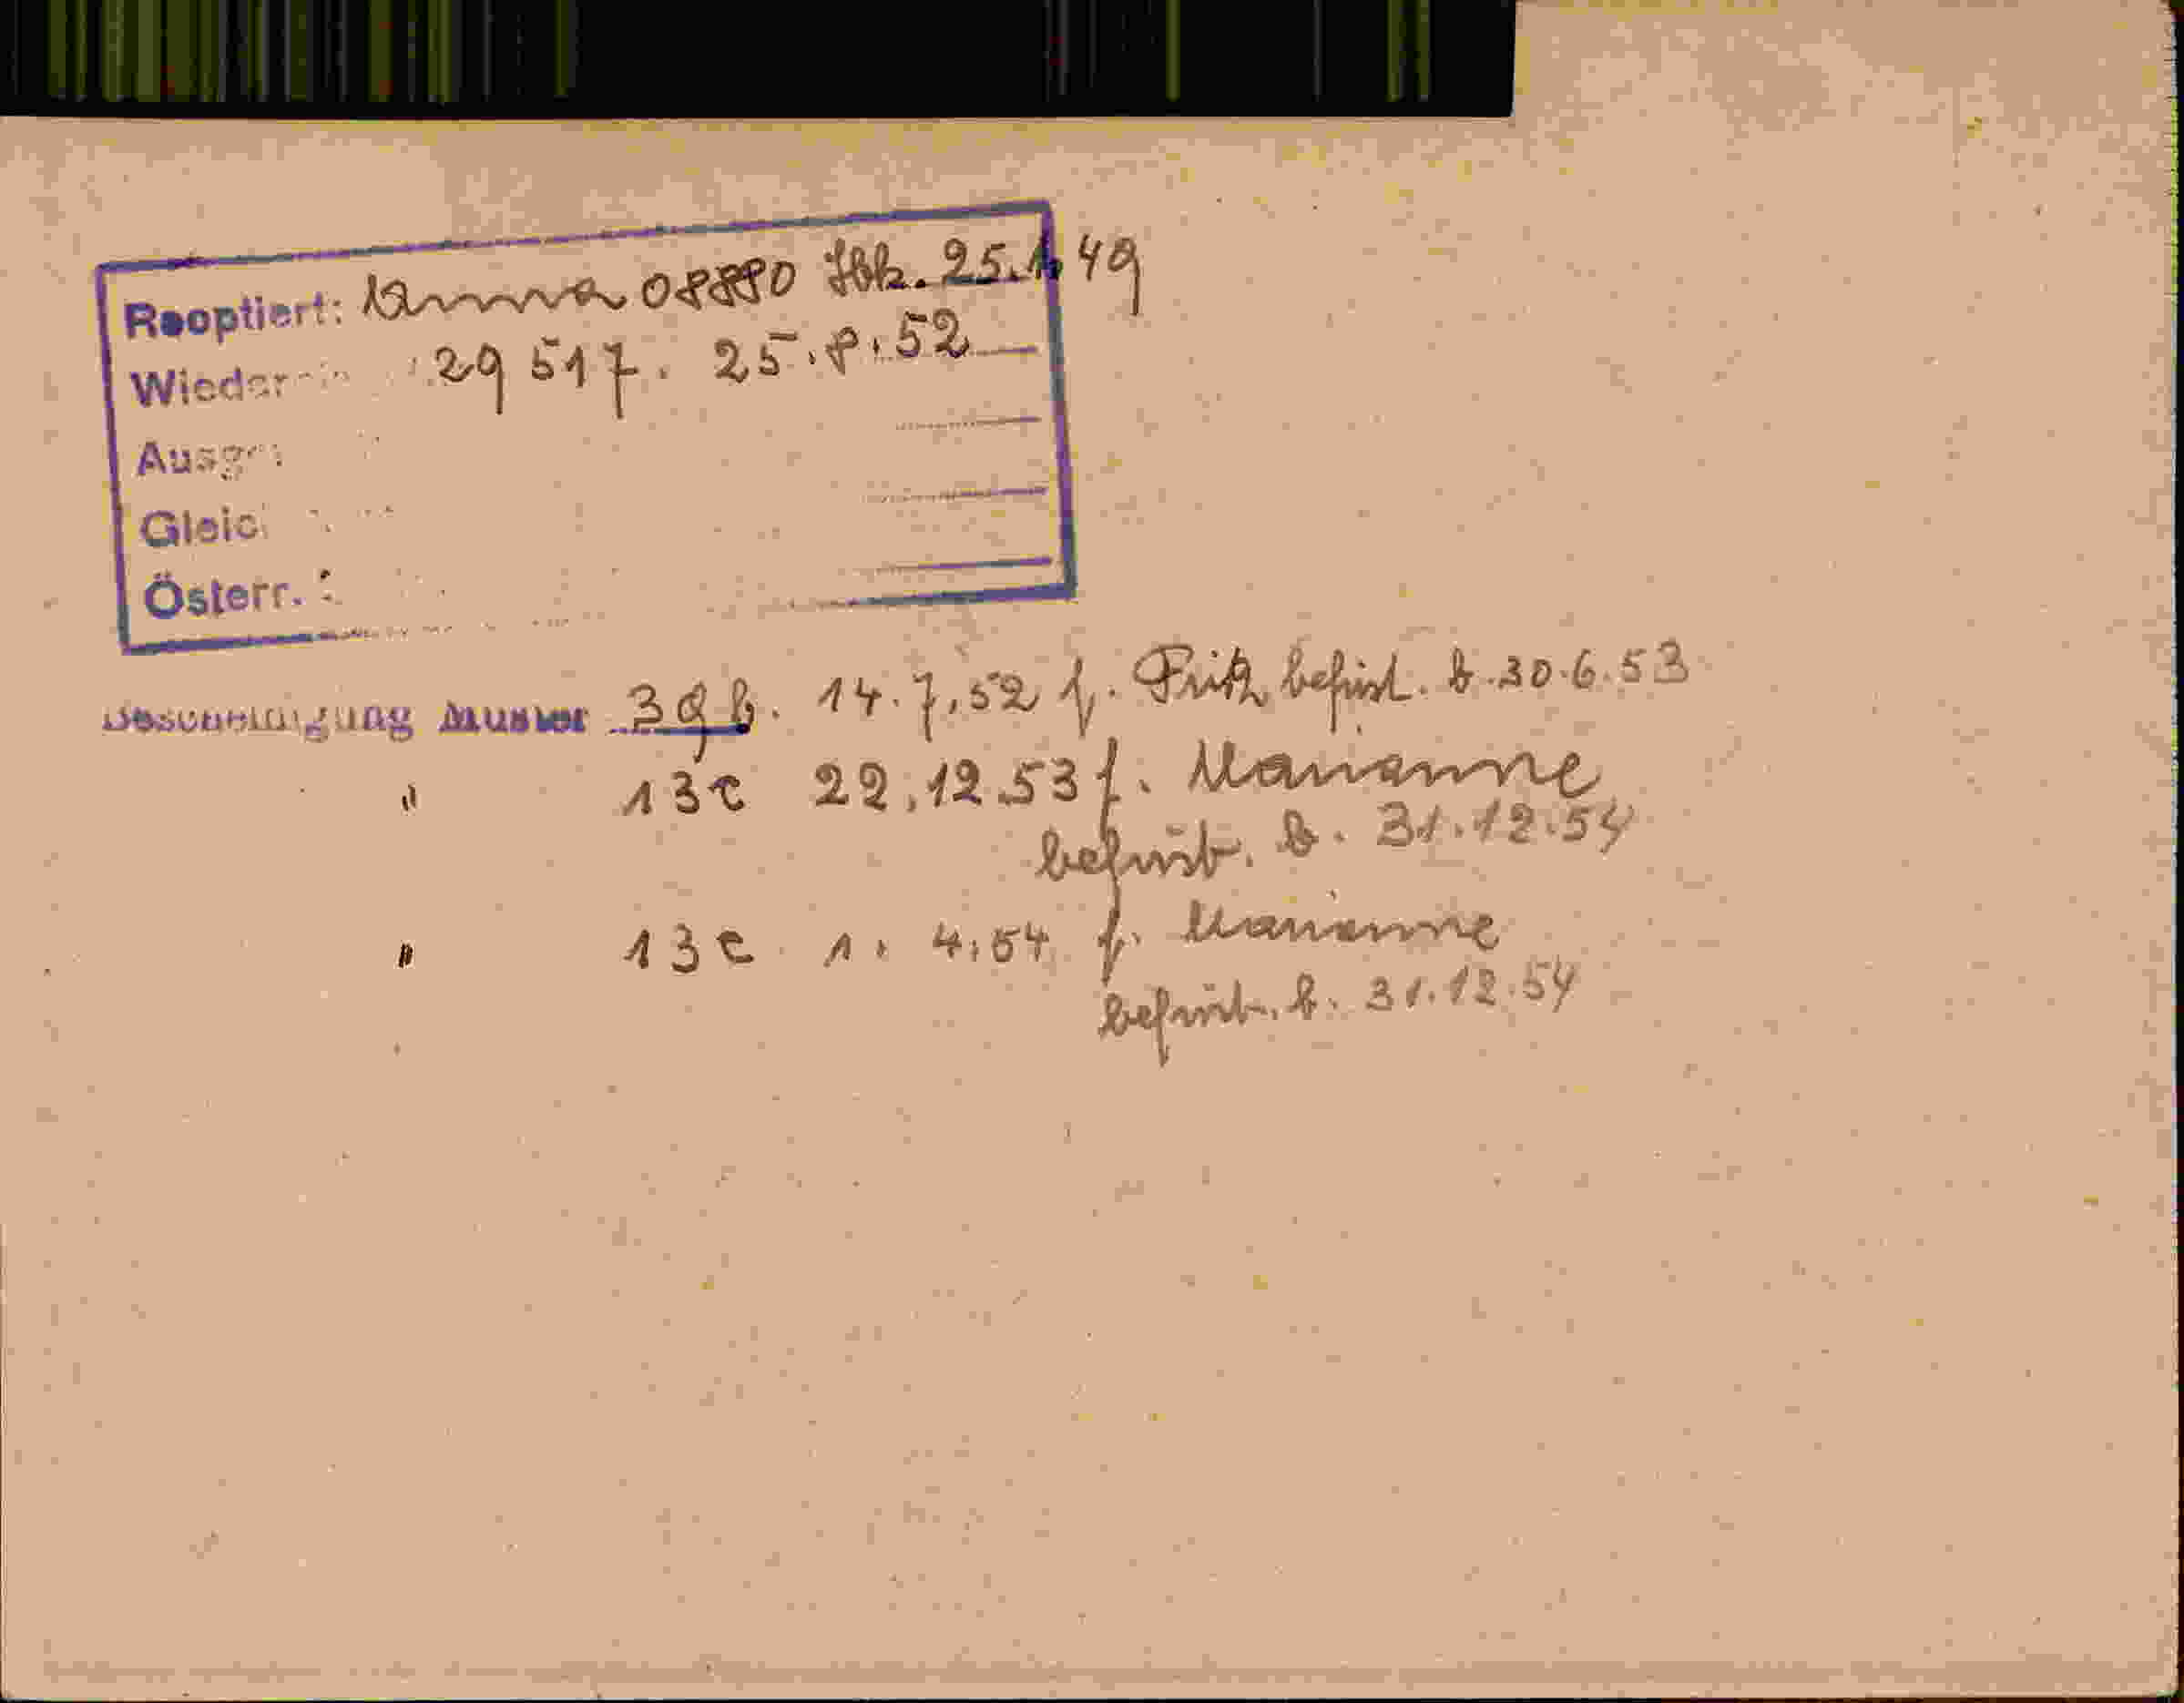 Reoptiert: Anna 08880 Ibk. 25.1.49
29517. 25.8.52
Österr.
Bescheinigung Muster 39b. 14.7.52 f. Fritz befrist. b. 30.6.53
" 13c 22.12.53 f. Marianne
befrist. b. 31.12.54
" 13c 1.4.54 f. Marianne
befrist. b. 31.12.54